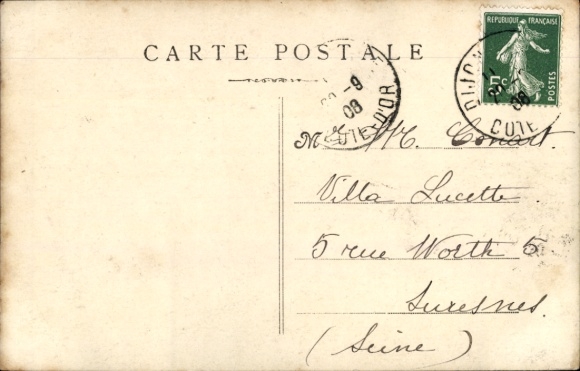 CARTE POSTALE
REPUBLIQUE FRANÇAISE
5c
POSTES
DIJON
08
COTE
-9
08
COTE-D'OR
M
Villa Lucette
5 rue Worth 5
Suresnes
(Seine)